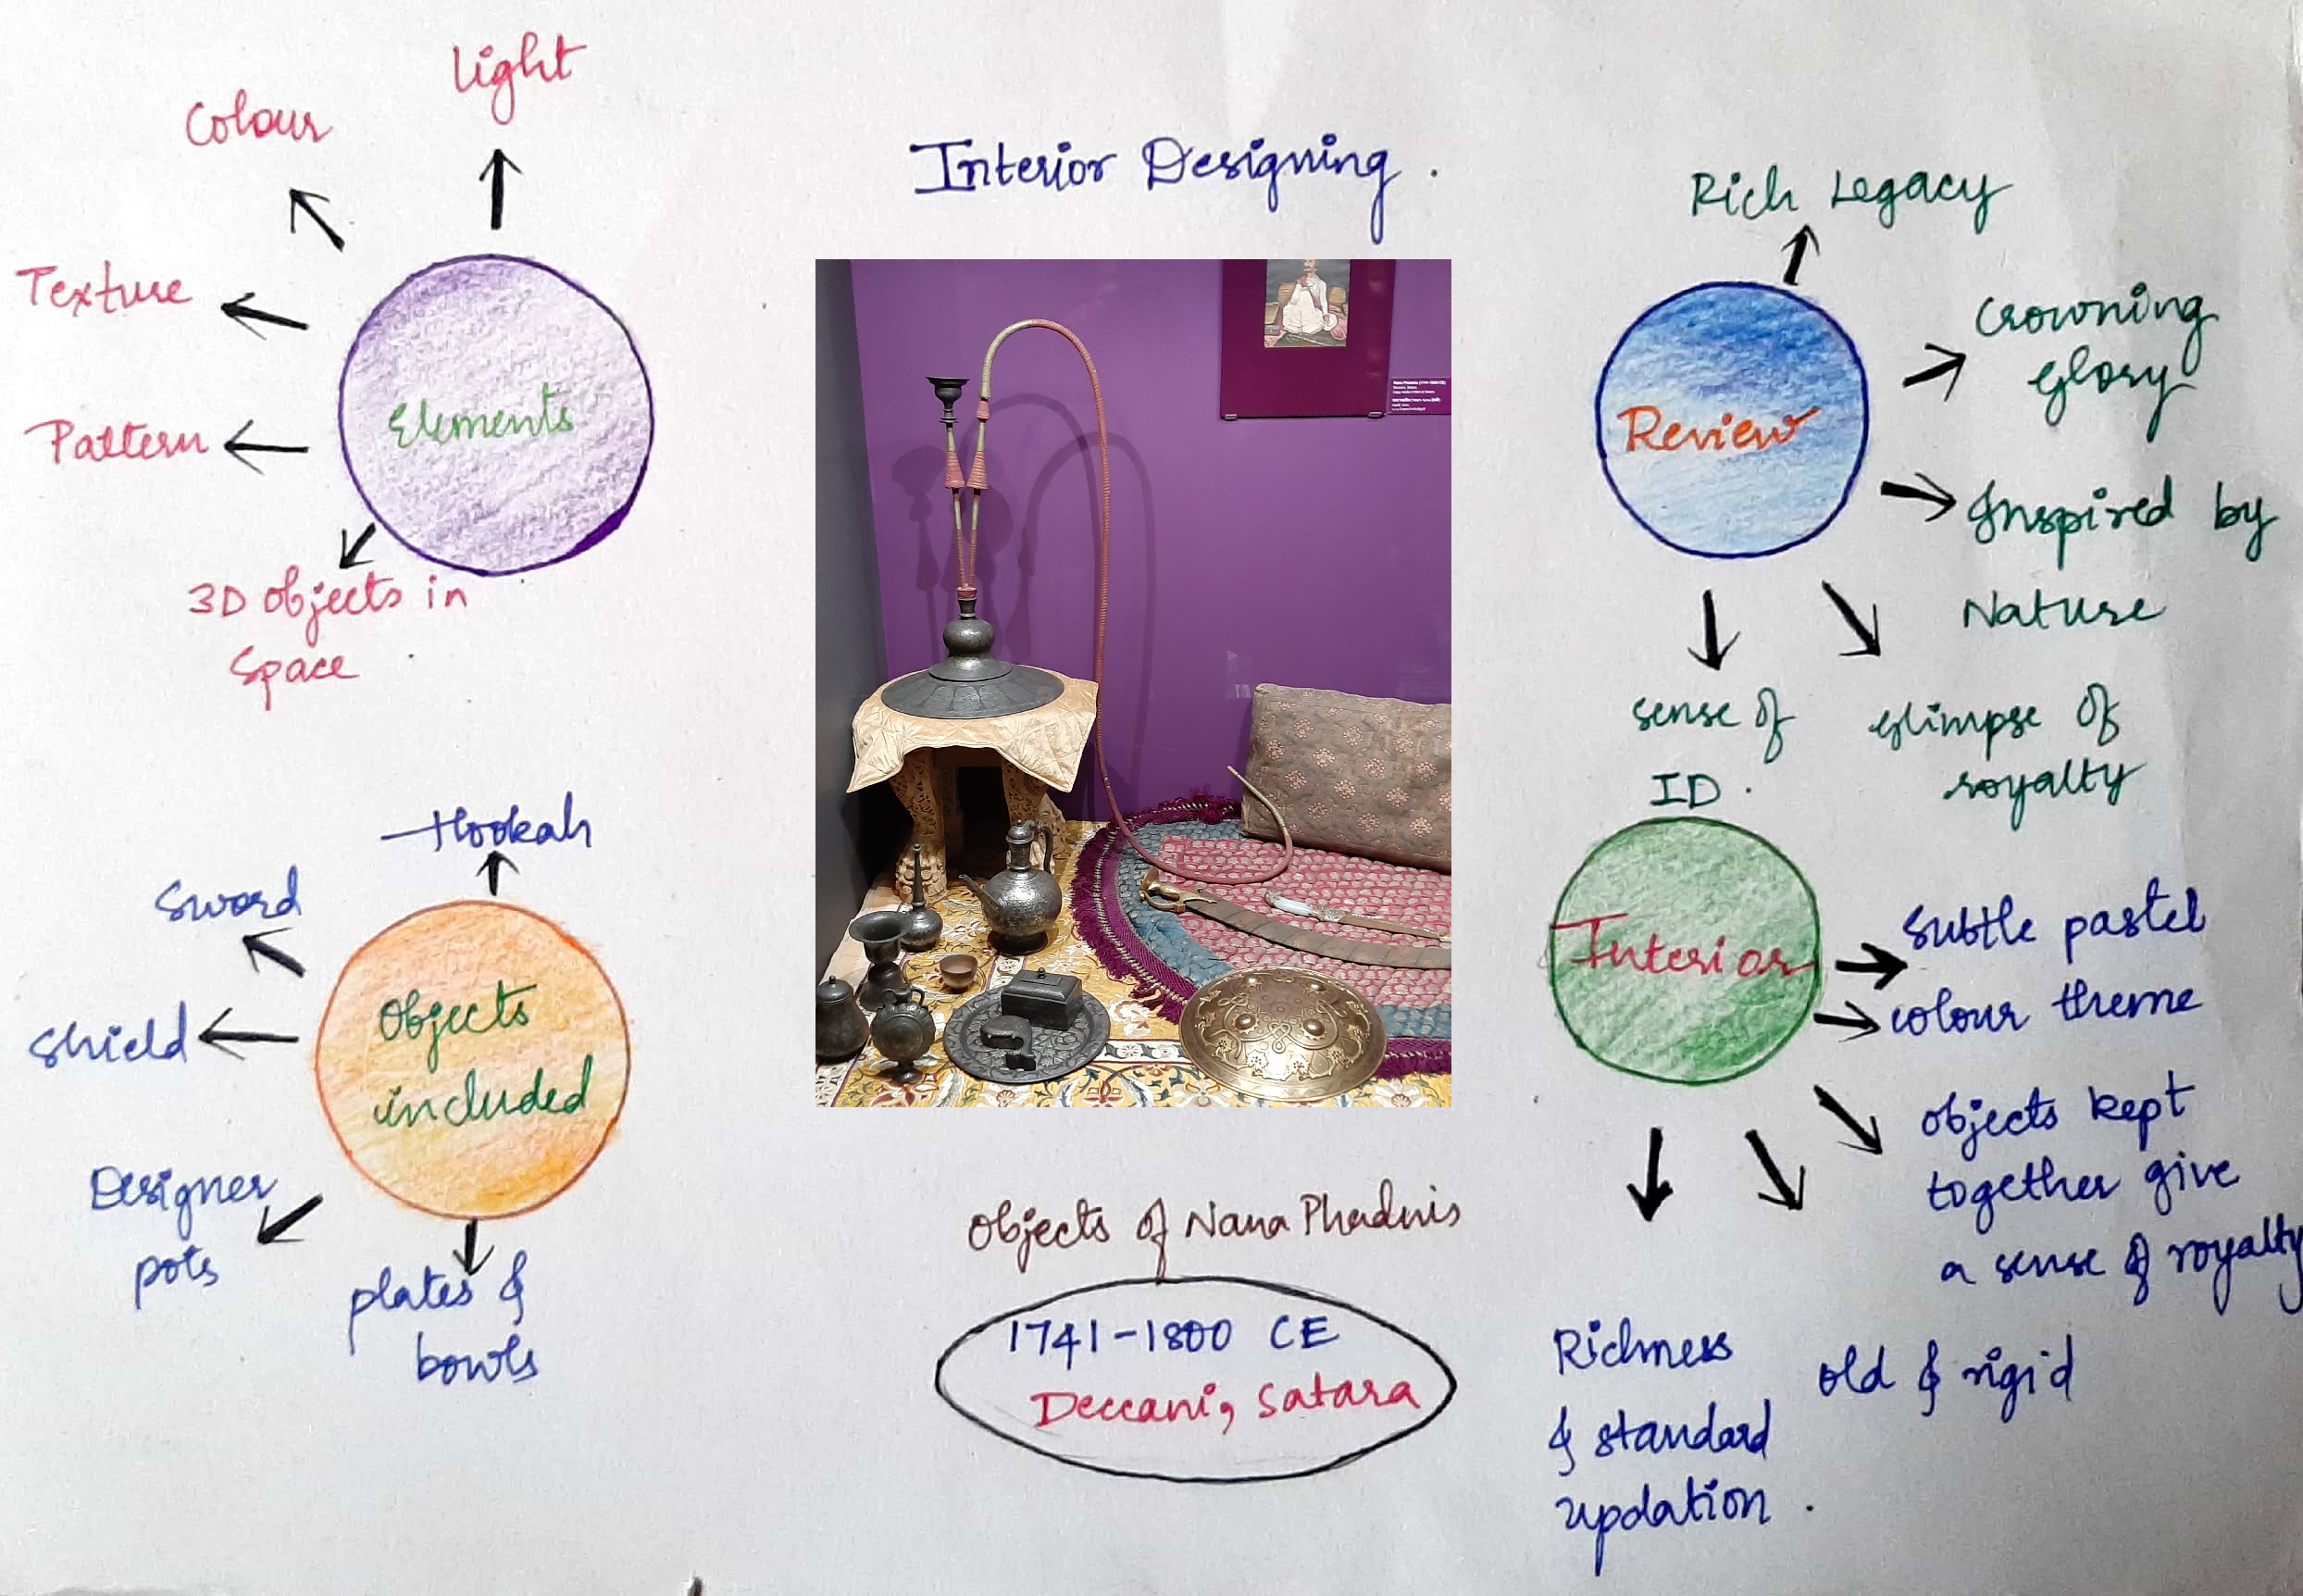 Interior Designing.
Light
Colour
Texture
Pattern
3D Objects in
Space.
Elements
Hookah
Sword
Shield
Designer
pots
plates &
bowls
Objects
included
Objects of Nana Phadnis
1741-1800 CE
Deccani, Satara
Rich Legacy
Crowning
Glory
Inspired by
Nature
Glimpse of
royalty
sense of
ID.
Review
Interior
Subtle pastel
colour theme
objects kept
together give
a sense of royalty
old & rigid
Richness
& standard
updation.